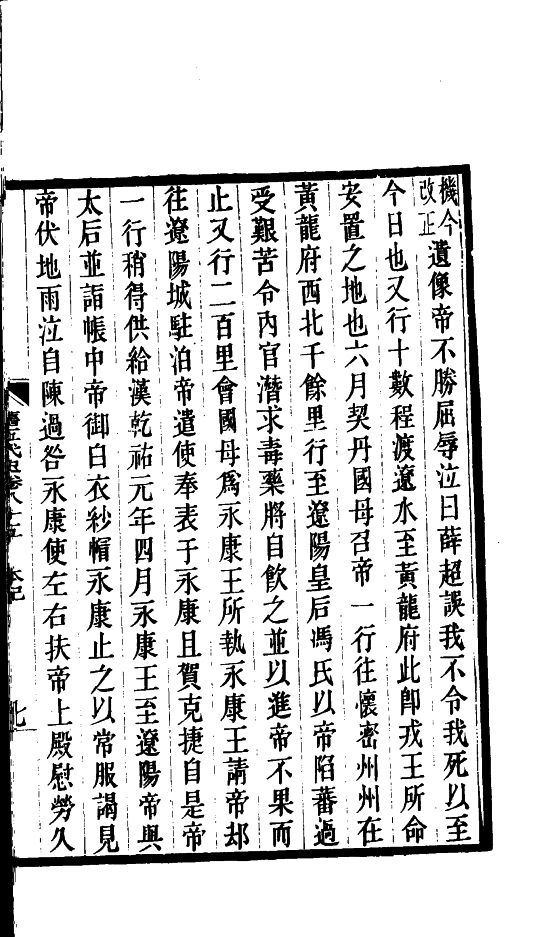 機今改正遺像帝不勝屈辱泣曰薛超誤我不令我死以至
今日也又行十數程渡遼水至黃龍府此卽戎王所命
安置之地也六月契丹國母召帝一行往懷密州州在
黃龍府西北千餘里行至遼陽皇后馮氏以帝陷蕃過
受艱苦令內官潛求毒藥將自飲之並以進帝不果而
止又行二百里會國母爲永康王所執永康王請帝却
往遼陽城駐泊帝遣使奉表于永康且賀克捷自是帝
一行稍得供給漢乾祐元年四月永康王至遼陽帝與
太后並詣帳中帝御白衣紗帽永康止之以常服謁見
帝伏地雨泣自陳過咎永康使左右扶帝上殿慰勞久
舊五代史卷八十五 本紀 七